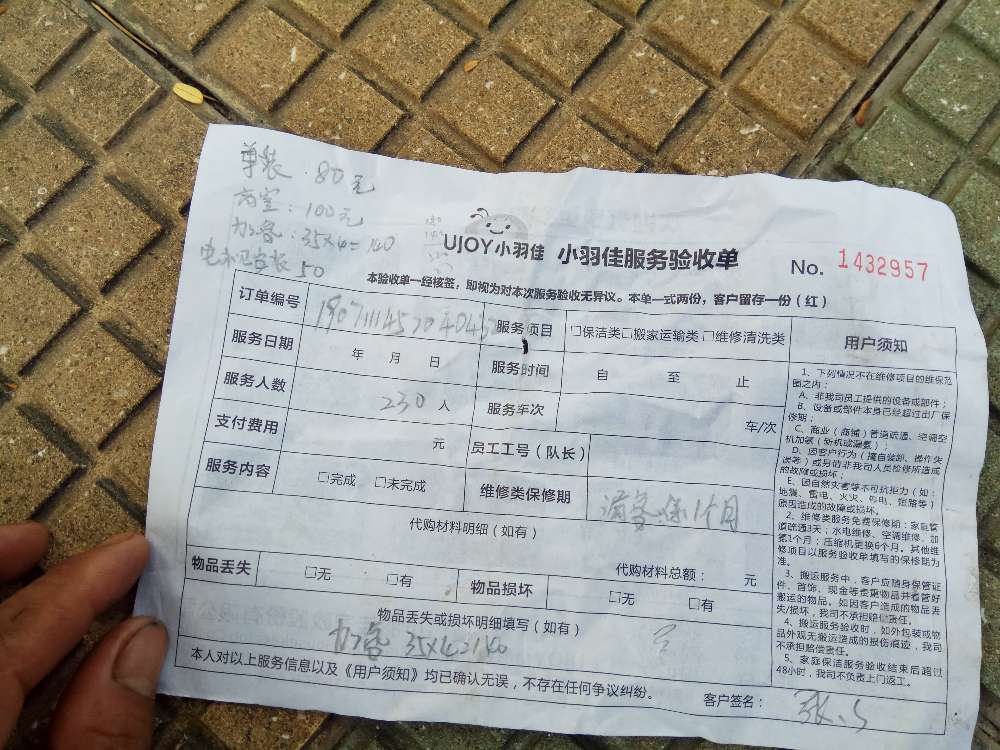 单装：80元
高室：100元
加客：35×4=140
50
UJOY小羽佳 小羽佳服务验收单 No. 1432957
本验收单一经核签，即视为对本次服务验收无异议。本单一式两份，客户留存一份（红）
订单编号 服务项目 □保洁类□搬家运输类 □维修清洗类 用户须知
服务日期 年 月 日 服务时间 自 至 止
服务人数 230 人 服务车次 车/次
支付费用 元 员工工号（队长）
服务内容 □完成 □未完成 维修类保修期 保1个月
代购材料明细（如有）
代购材料总额： 元
物品丢失 □无 □有 物品损坏 □无 □有
物品丢失或损坏明细填写（如有）
加客 35×4=140
本人对以上服务信息以及《用户须知》均已确认无误，不存在任何争议纠纷。 客户签名：
1、下列情况不在维修项目的维保范
围之内：
A、非我司员工提供的设备或部件；
B、设备或部件本身已经超过出厂保
修期；
C、商业（商铺）管道疏通、空调空
机加氨（新机或漏氨）；
D、因客户行为（擅自装卸、操作失
误等）或另请非我司人员检修所造成
的故障或损坏；
E、因自然灾害等不可抗拒力（如：
地震、雷电、火灾、停电、短路等）
原因造成的故障或损坏。
2、维修类服务免费保修期：家庭管
道疏通3天；水电维修、空调维修、加
氨1个月；压缩机更换6个月。其他维
修项目以服务验收单填写的保修期为
准。
3、搬运服务中，客户应随身保管证
件、首饰、现金等贵重物品并看管好
搬运的物品。如因客户造成的物品丢
失/损坏，我司不承担赔偿责任。
4、搬运服务验收时，如外包装或物
品外观无搬运造成的损伤痕迹，我司
不承担赔偿责任。
5、家庭保洁服务验收结束后超过
48小时，我司不负责上门返工。